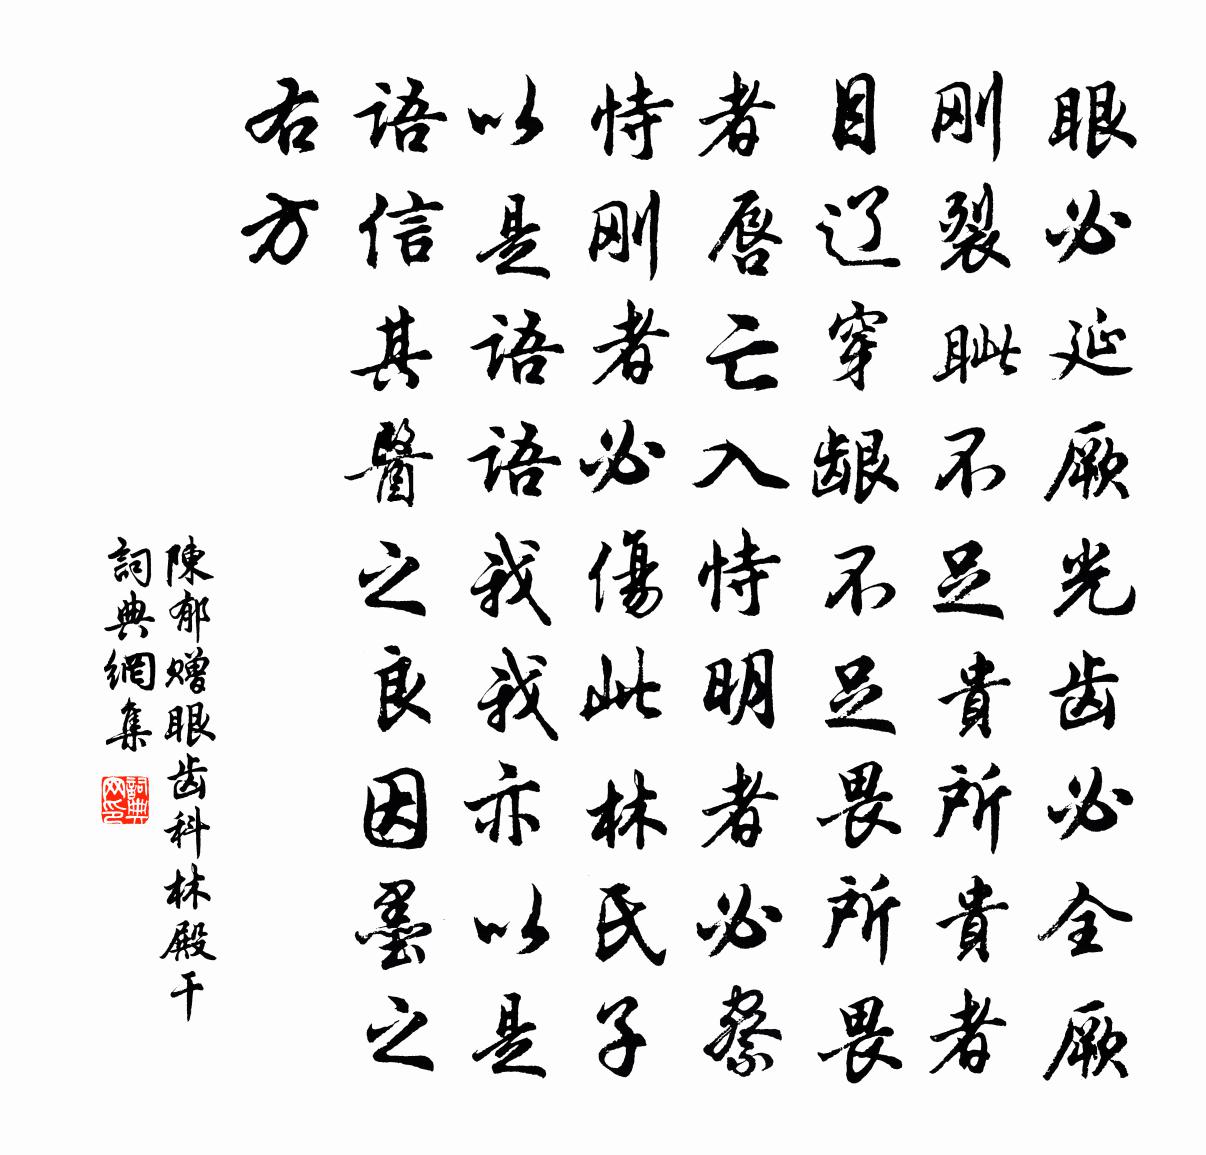 眼必延厥光齿必全厥
刚裂眦不足貴所貴者
目辽穿龈不足畏所畏
者唇亡入恃明者必察
恃刚者必傷此林氏子
以是語語我我亦以是
語信其醫之良因墨之
右方
陳郁赠眼齿科林殿干
詞典網集
詞典网印